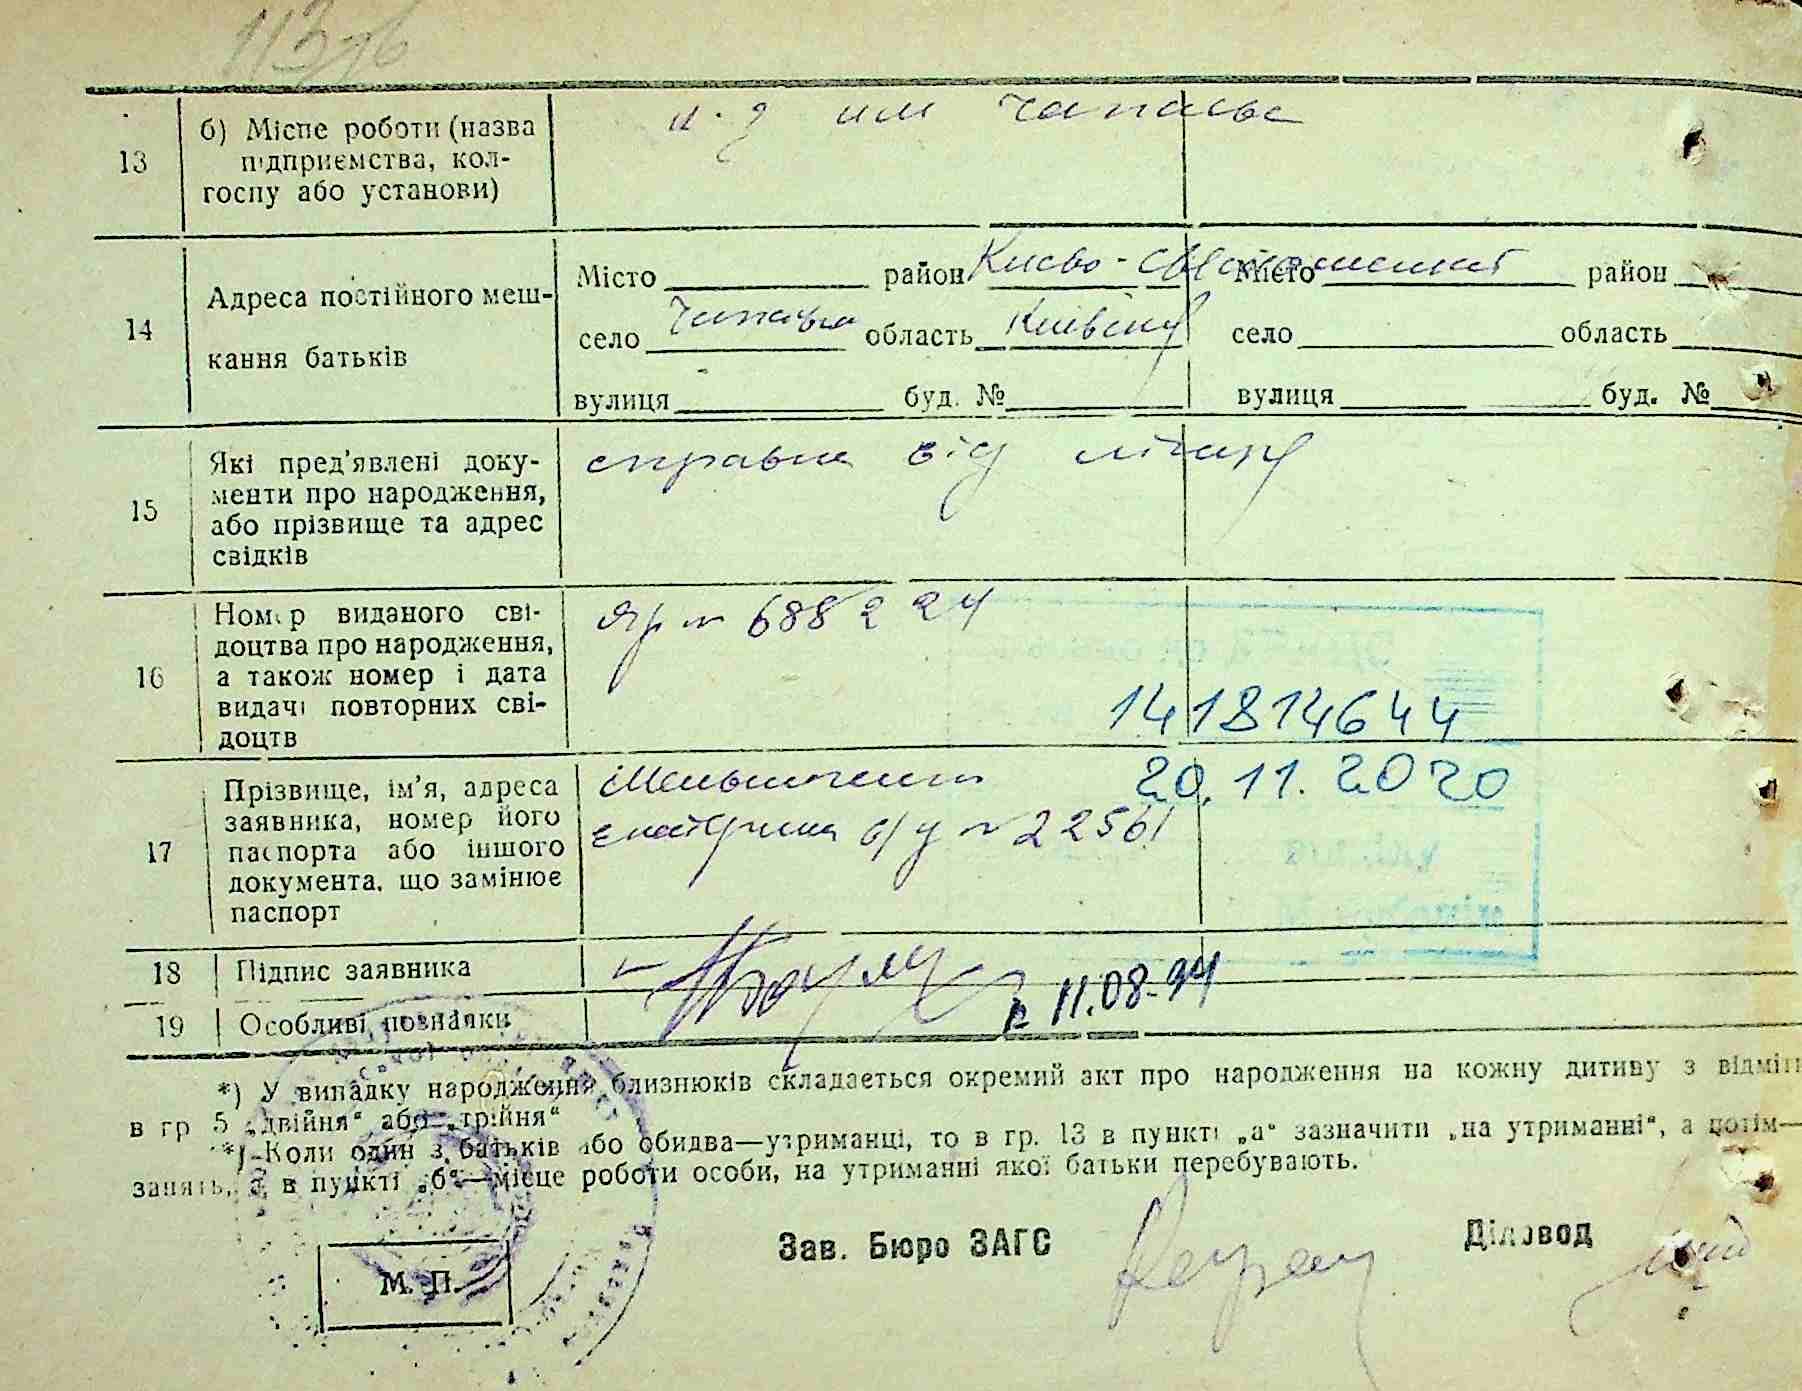 13
б) Місце роботи (назва
підприємства, кол-
госпу або установи)
им Чапаєва
14
Адреса постійного меш-
кання батьків
Місто район Києво-Святошинский
село Чапаєвка область Київська
вулиця буд. №
Місто район
село область
вулиця буд. №
15
Які пред'явлені доку-
менти про народження,
або прізвище та адрес
свідків
справка від лікаря
16
Номер виданого сві-
доцтва про народження,
а також номер і дата
видачі повторних сві-
доцтв
№ 688224
141814644
20.11.2020
17
Прізвище, ім'я, адреса
заявника, номер його
паспорта або іншого
документа, що замінює
паспорт
Екатерина № 22561
18 Підпис заявника
19 Особливі позначки
11.08.94
*) У випадку народження близнюків складається окремий акт про народження на кожну дитину з відміт
в гр 5 „двійня“ або „трійня“
*) Коли один з батьків або обидва—утриманці, то в гр. 13 в пункті „а“ зазначити „на утриманні“, а потім—
занять, а в пункті „б“—місце роботи особи, на утриманні якої батьки перебувають.
Зав. Бюро ЗАГС
Діловод
М. П.